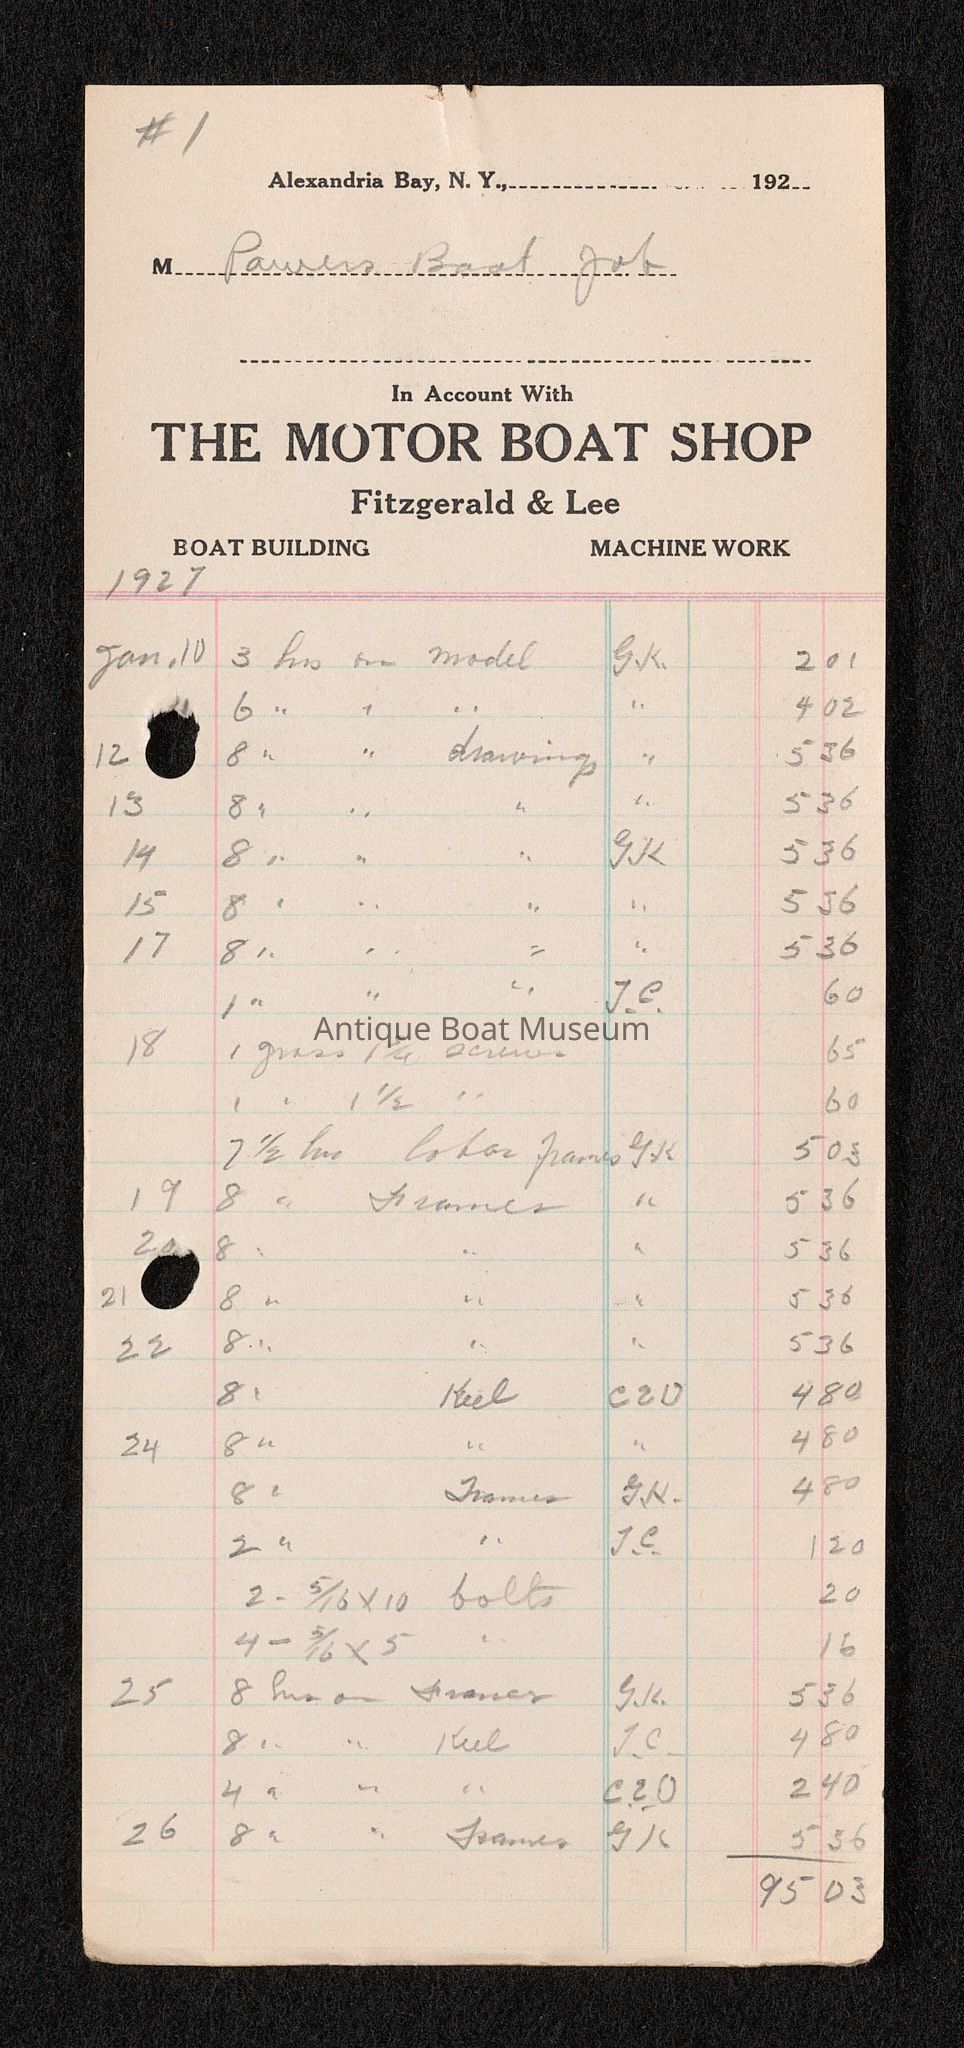 #1
Alexandria Bay, N. Y., 192
M Powers Boat Job
In Account With
THE MOTOR BOAT SHOP
Fitzgerald & Lee
BOAT BUILDING MACHINE WORK
1927
Jan. 10 3 hrs on model G.K. 2 01
6 " " " " 4 02
12 8 " " drawings " 5 36
13 8 " " " " 5 36
14 8 " " " GK 5 36
15 8 " " " " 5 36
17 8 " " " " 5 36
1 " " " J.C. 60
Antique Boat Museum
18 1 gross 1 3/4 screws 65
1 " 1 1/2 " 60
7 1/2 hrs labor frames GK 5 03
19 8 " Frames " 5 36
20 8 " " " 5 36
21 8 " " " 5 36
22 8 " " " 5 36
8 " Keel 4 80
24 8 " " " 4 80
8 " Frames G.K. 4 80
2 " " J.C. 1 20
2 - 5/16 X 10 bolts 20
4 - 5/16 X 5 " 16
25 8 hrs on Frames G.K. 5 36
8 " " Keel J.C. 4 80
4 " " " 2 40
26 8 " " Frames GK 5 36
95 03